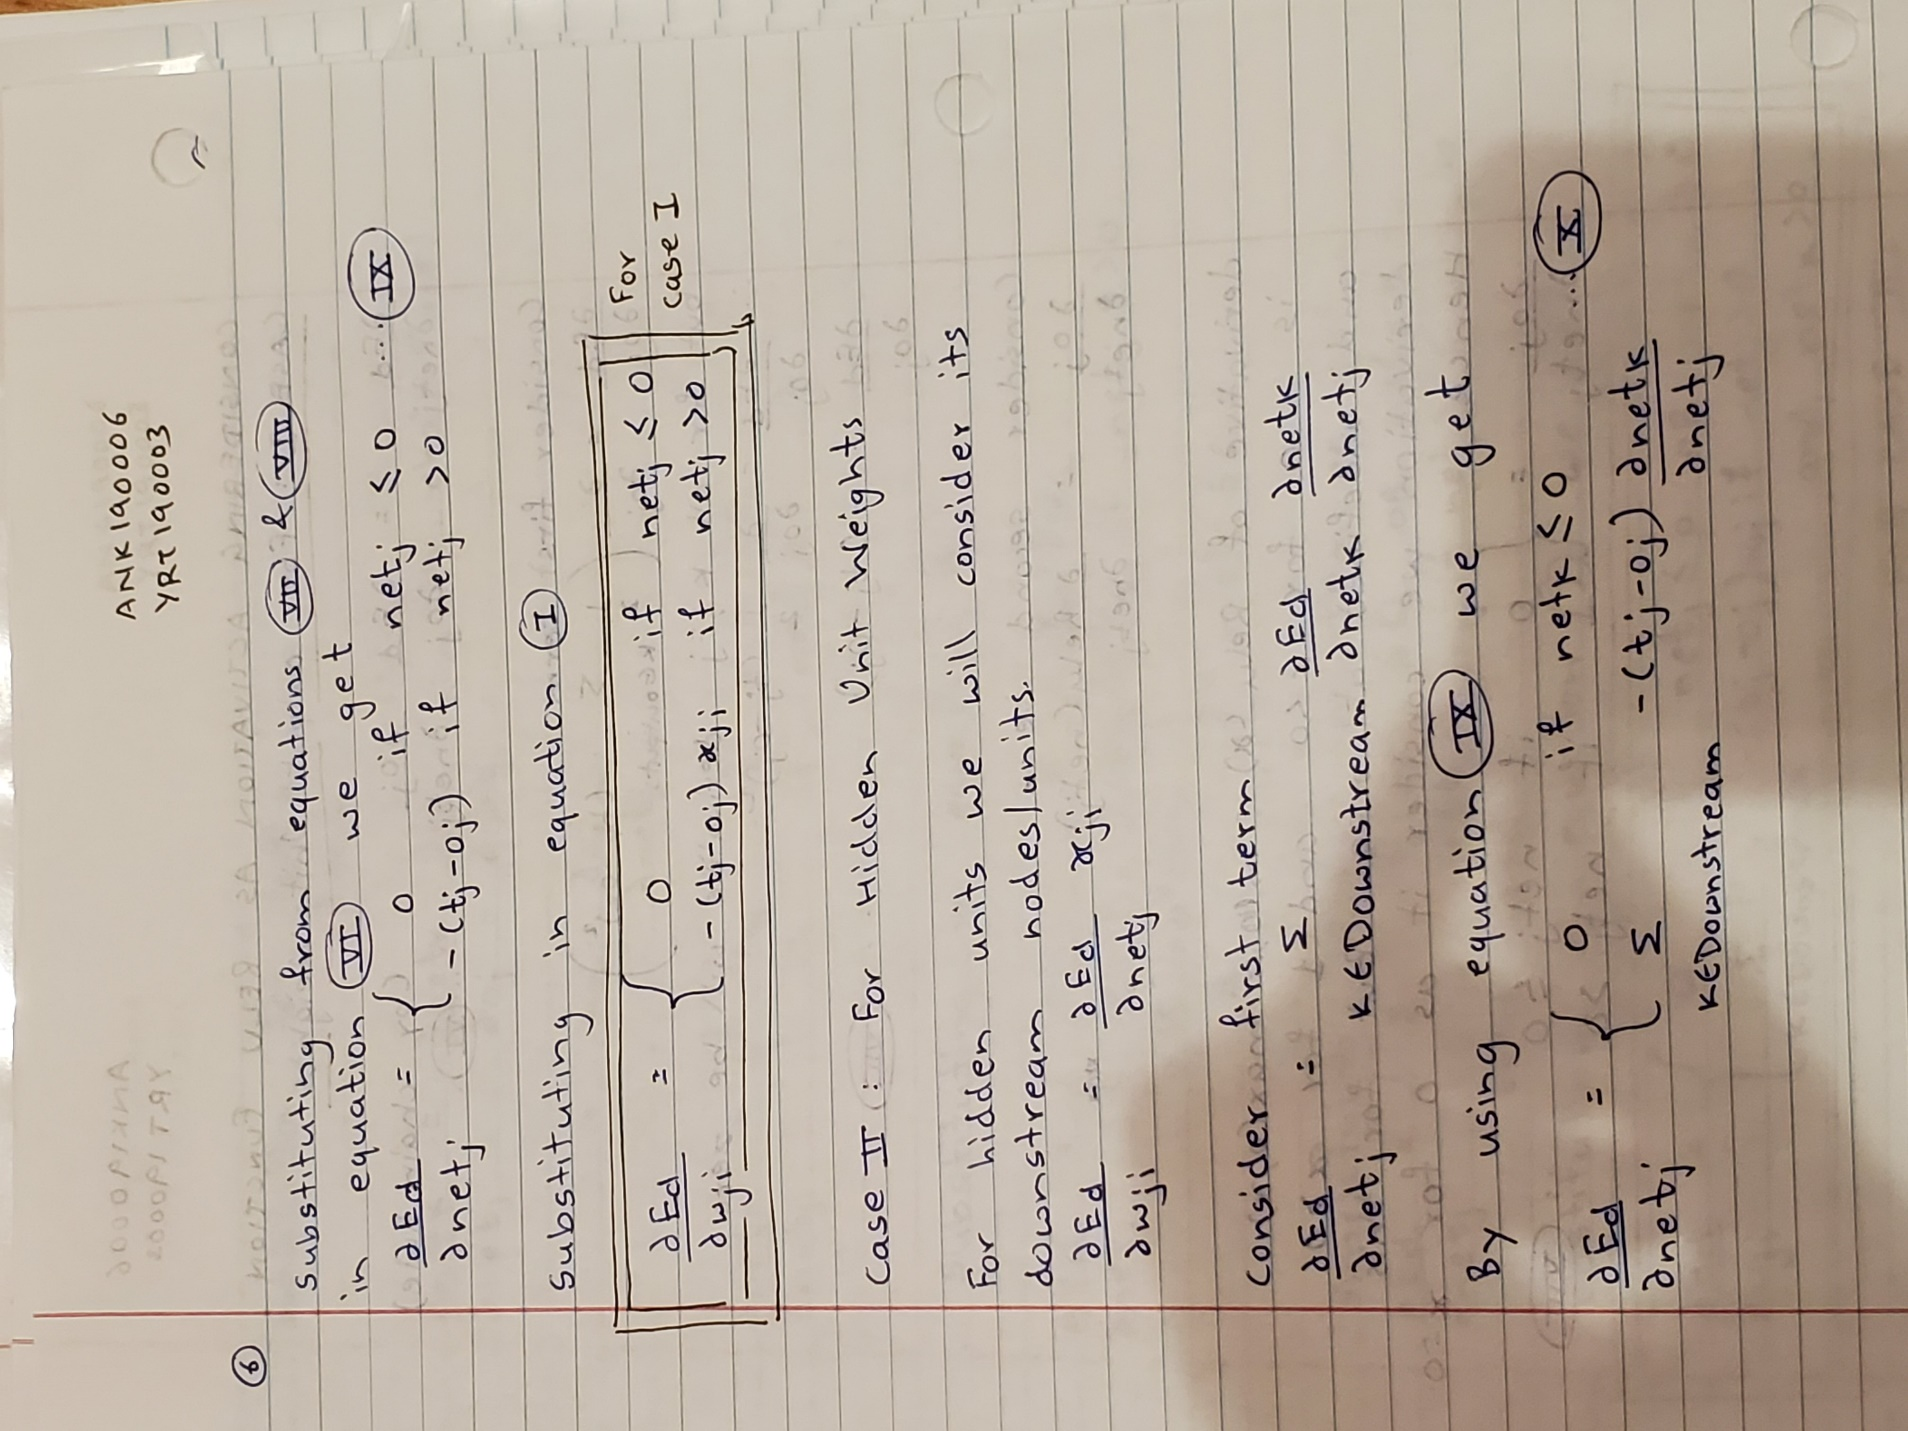 ANK190006
YRT190003
6
substituting from equations VII & VIII
in equation VI we get
∂Ed = { 0 if netj ≤ 0 .... IX
∂netj { -(tj-oj) if netj > 0
Substituting in equation I
∂Ed = { 0 if netj ≤ 0 For
∂wji { -(tj-oj) xji if netj > 0 case I
Case II : For Hidden Unit Weights
For hidden units we will consider its
downstream nodes/units.
∂Ed = ∂Ed xji
∂wji ∂netj
Consider first term
∂Ed = Σ ∂Ed ∂netk
∂netj k∈Downstream ∂netk ∂netj
By using equation IX we get
∂Ed = { 0 if netk ≤ 0 .... X
∂netj { Σ -(tj-oj) ∂netk
k∈Downstream ∂netj